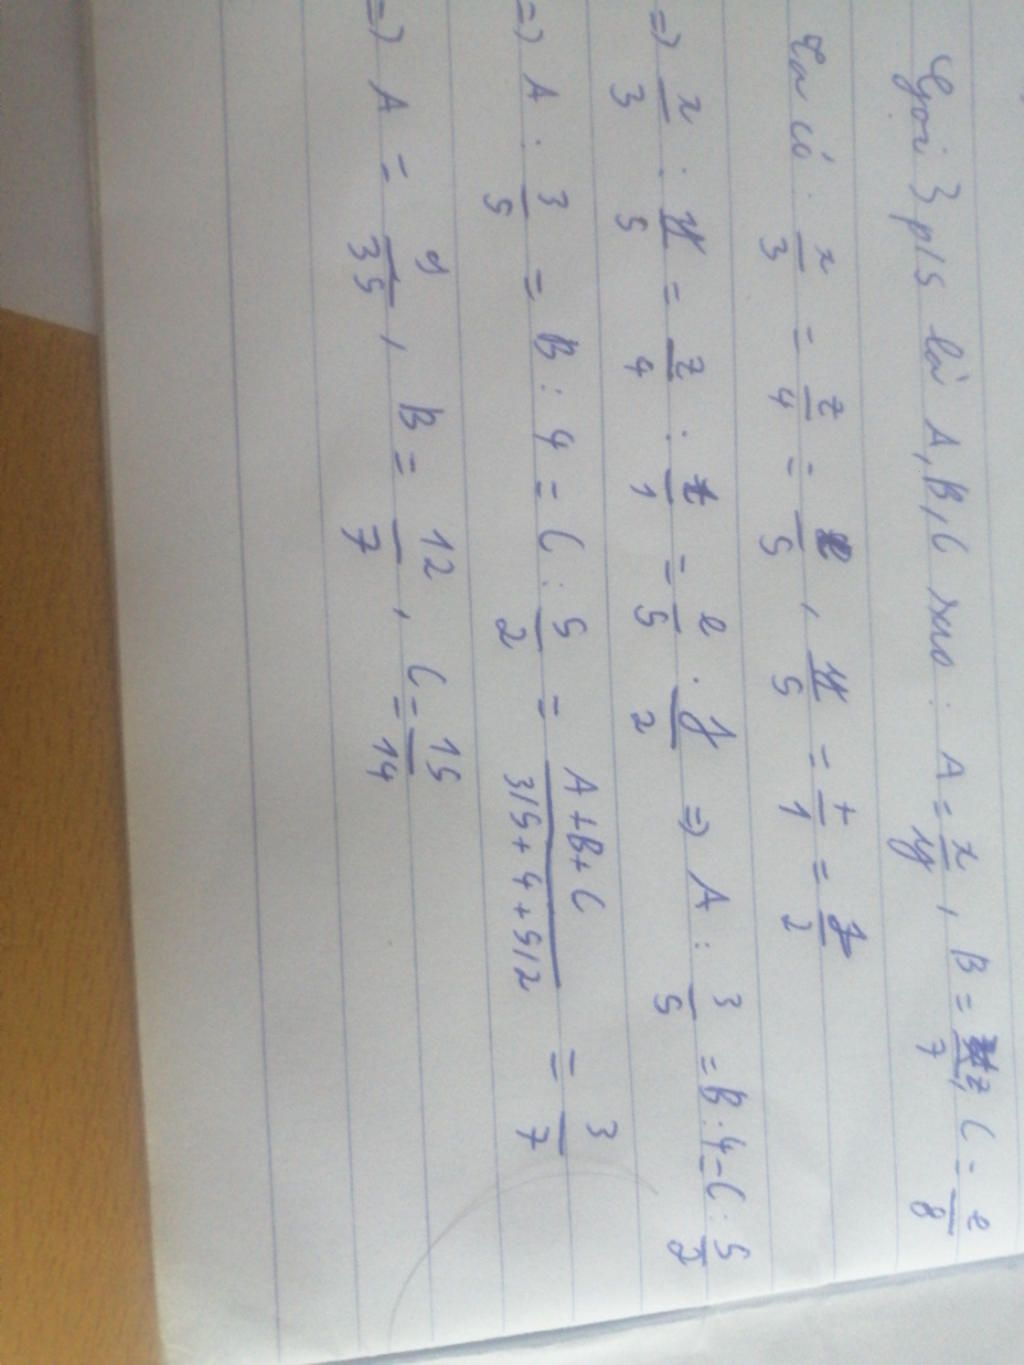 Gọi 3 p/s là A, B, C sao : A = x/y, B = z/7, C = e/8
Ta có : x/3 = z/4 = e/5, y/5 = t/1 = g/2
=) x/3 : y/5 = z/4 : t/1 = e/5 : g/2 =) A : 3/5 = B : 4 = C : 5/2
=) A : 3/5 = B : 4 = C : 5/2 = A + B + C / 3/5 + 4 + 5/2 = 3/7
=) A = 9/35, B = 12/7, C = 15/14